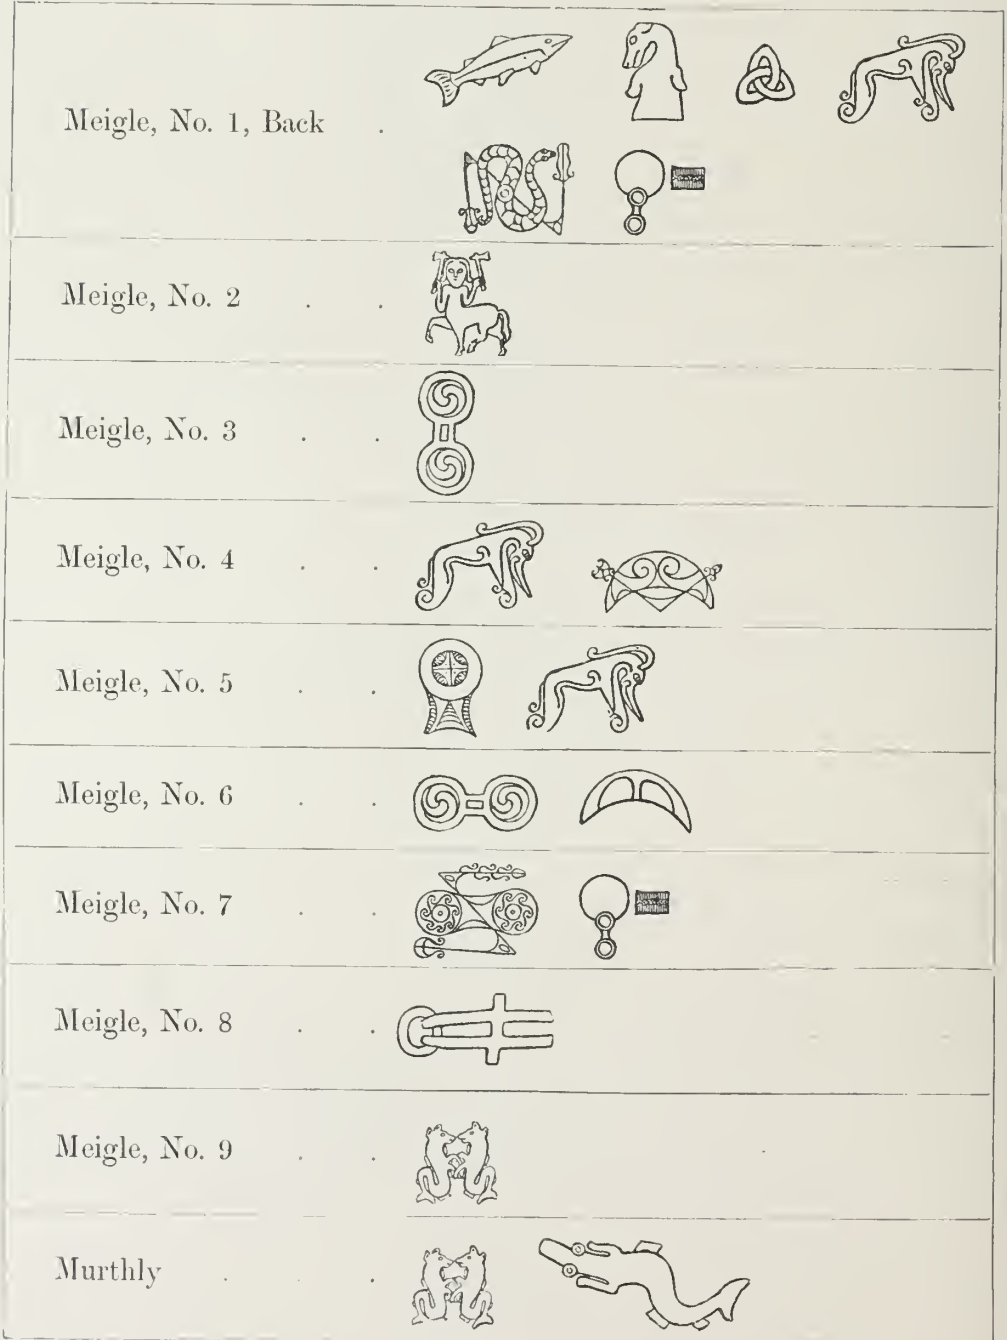 Meigle, No. 1, Back .
Meigle, No. 2 . .
Meigle, No. 3 . .
Meigle, No. 4 . .
Meigle, No. 5 . .
Meigle, No. 6 . .
Meigle, No. 7 . .
Meigle, No. 8 . .
Meigle, No. 9 . .
Murthly . . .